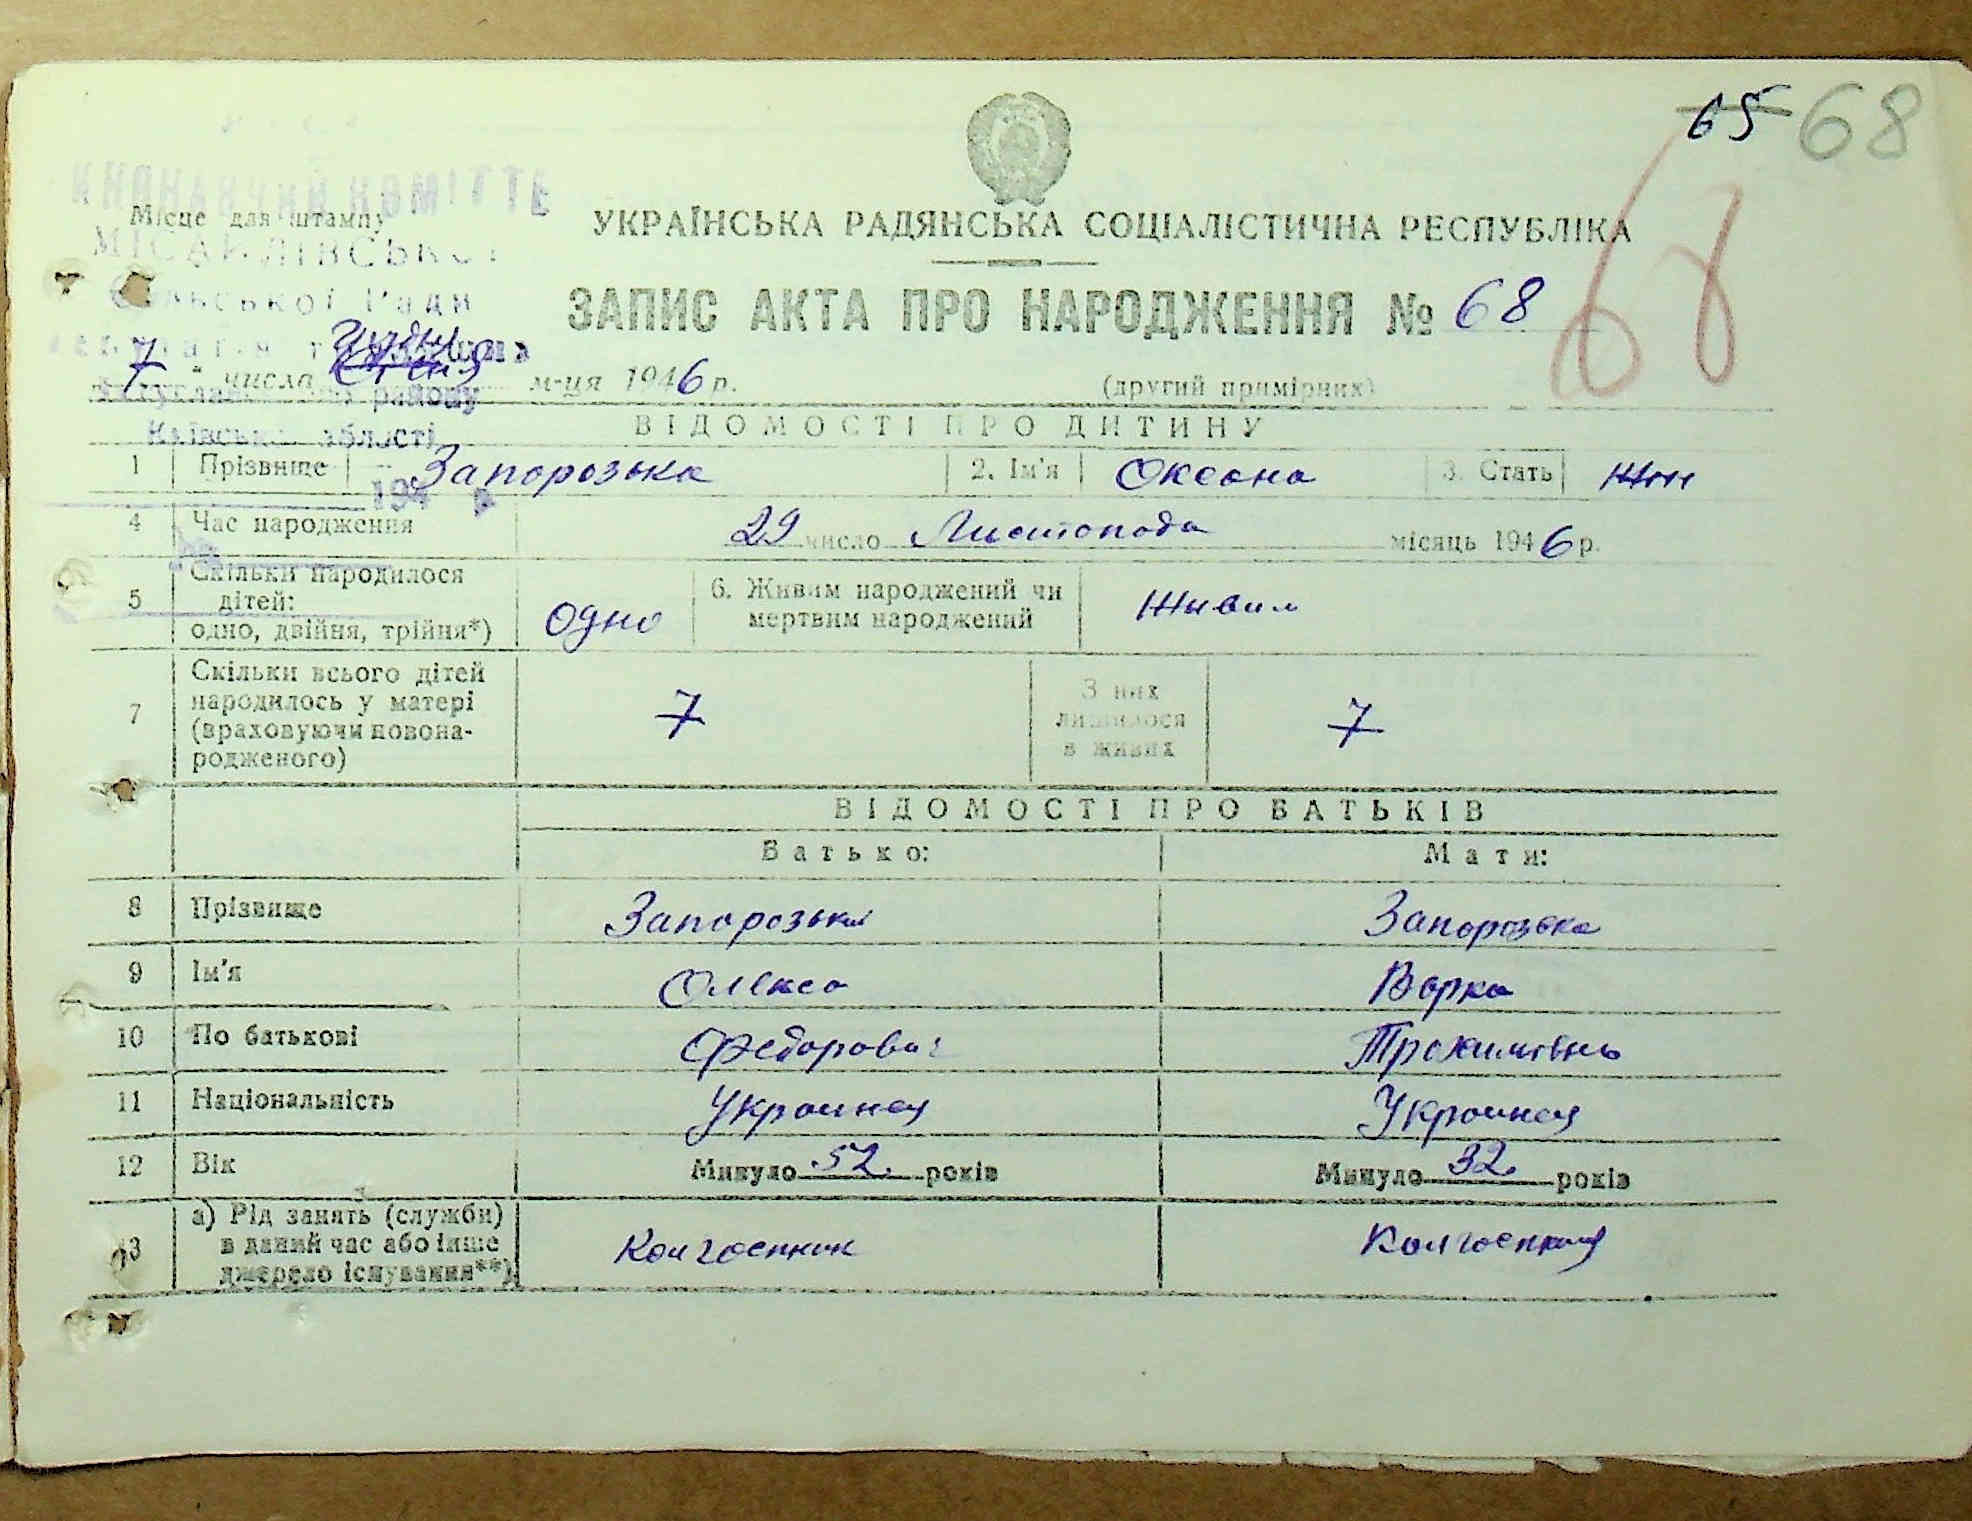 65 68
68
Місце для штампу
УКРАЇНСЬКА РАДЯНСЬКА СОЦІАЛІСТИЧНА РЕСПУБЛІКА
ЗАПИС АКТА ПРО НАРОДЖЕННЯ № 68
7 " числа грудня м-ця 1946 р.
(другий примірник)
району
Київської області
194 р
ВІДОМОСТІ ПРО ДИТИНУ
1 Прізвище Запорозька 2. Ім'я Оксана 3. Стать жін
4 Час народження 29 число Листопада місяць 1946 р.
5 Скільки народилося дітей: одно, двійня, трійня*) Одно 6. Живим народжений чи мертвим народжений Живим
7 Скільки всього дітей народилось у матері (враховуючи новонародженого) 7 З них лишилося в живих 7
ВІДОМОСТІ ПРО БАТЬКІВ
Батько: Мати:
8 Прізвище Запорозький Запорозька
9 Ім'я Олекса Варка
10 По батькові Федорович Трохимівна
11 Національність Украинец Украинец
12 Вік Минуло 52 років Минуло 32 років
13 а) Рід занять (служби) в даний час або інше джерело існування**) Колгоспник Колгоспниця